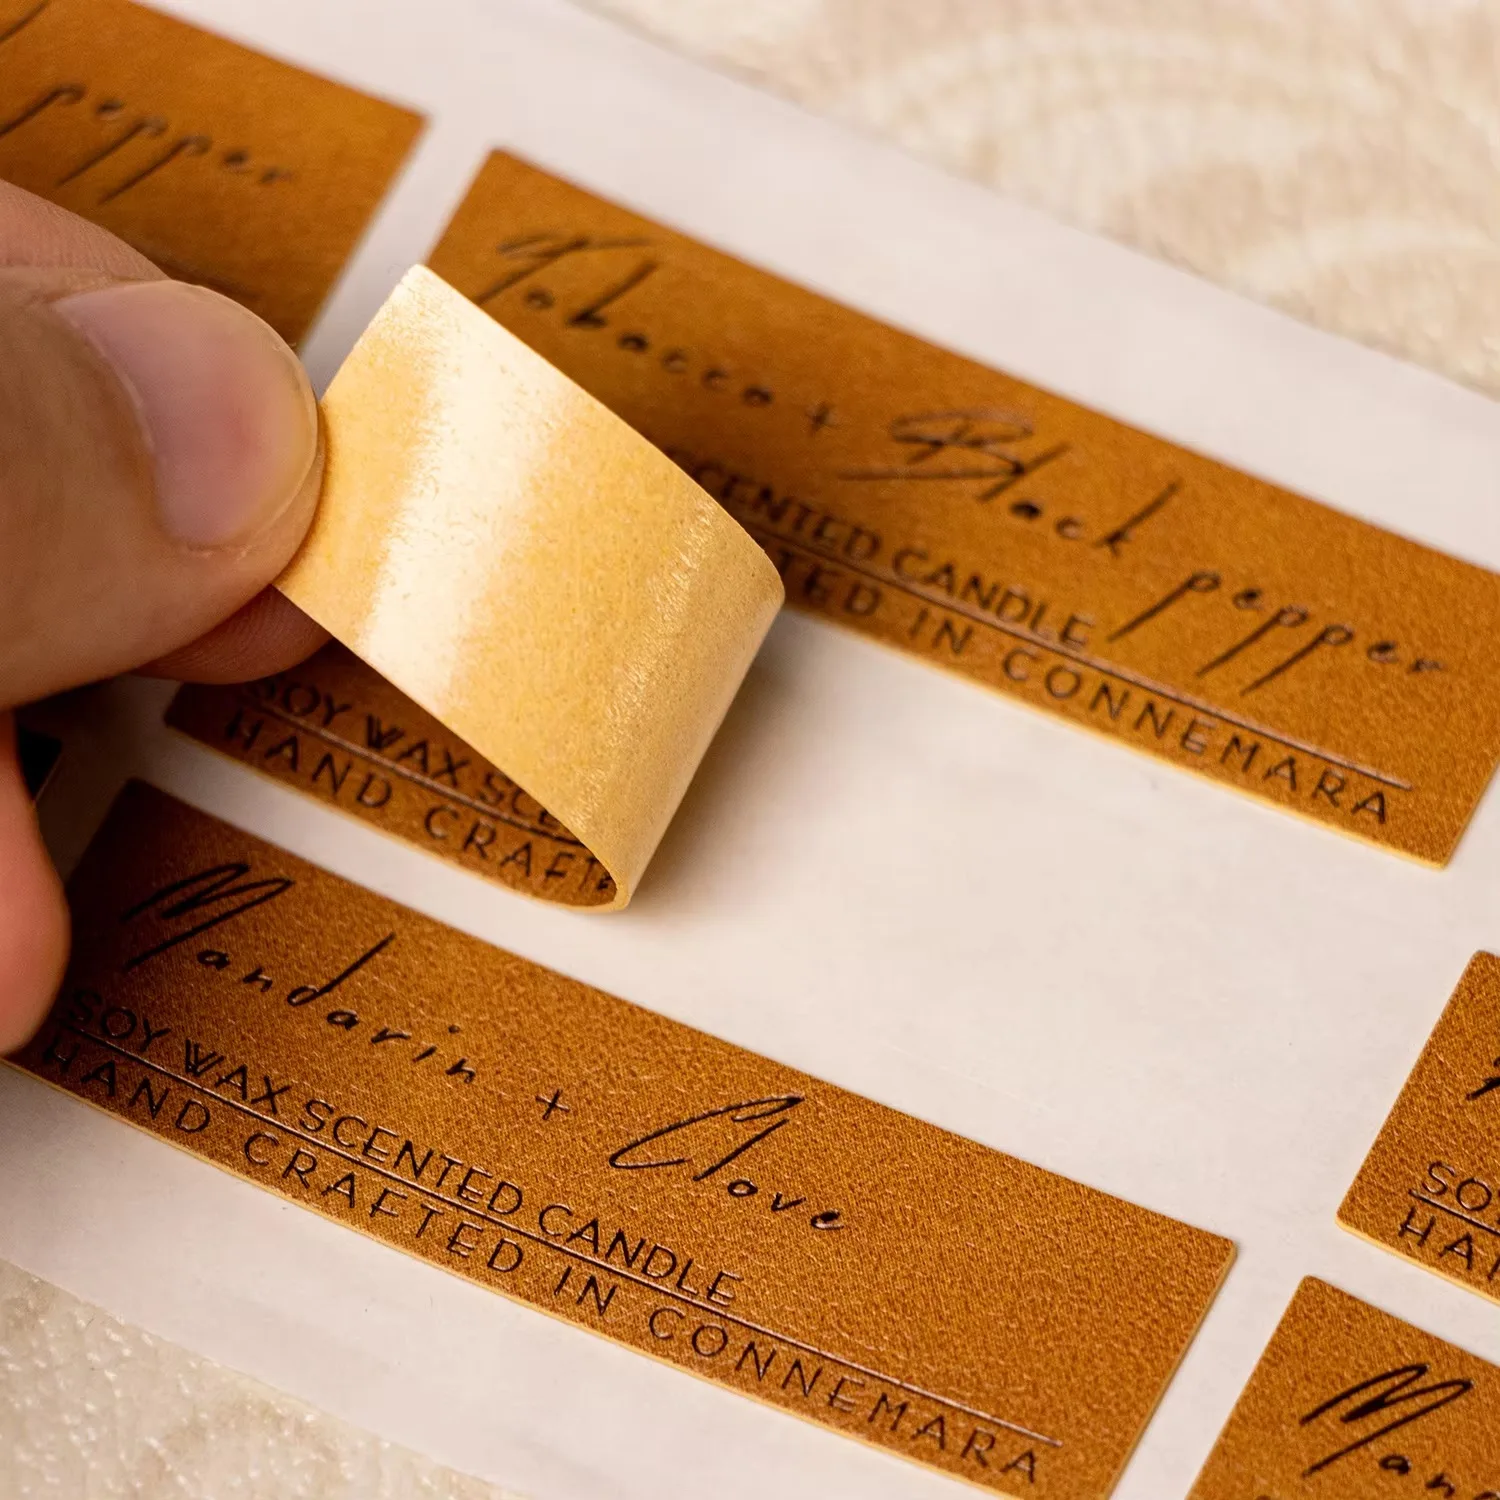 pepper
Tobacco + Black pepper
SCENTED CANDLE
TED IN CONNEMARA
SOY WAX SCE
HAND CRAFTE
Mandarin + Clove
SOY WAX SCENTED CANDLE
HAND CRAFTED IN CONNEMARA
SO
HA
Man